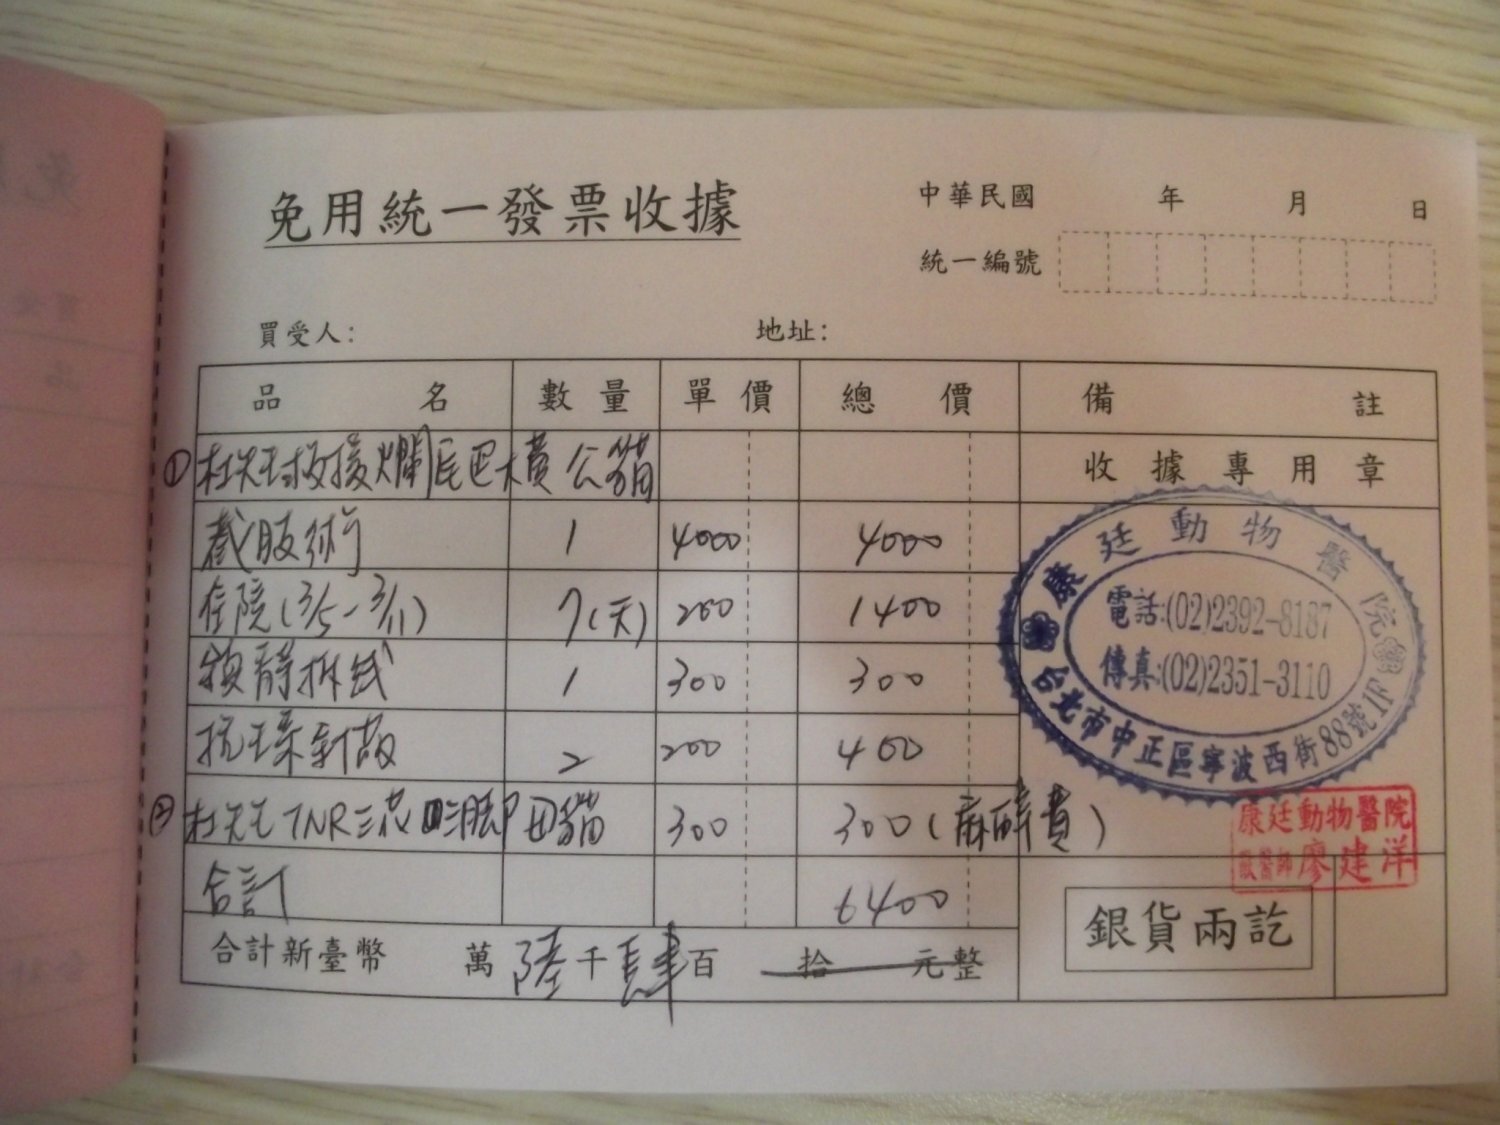 免用統一發票收據
中華民國 年 月 日
統一編號
買受人: 地址:
品名 數量 單價 總價 備註
① 救援爛尾巴橘公貓
收據專用章
截肢術 1 4000 4000
住院(3/5-3/11) 7(天) 200 1400
鎮靜拆線 1 300 300
抗生素針劑 2 200 400
② TNR三花 貓 300 300(麻醉費)
合計 6400
合計新臺幣 萬陸千肆百拾元整
康廷動物醫院
電話:(02)2392-8187
傳真:(02)2351-3110
台北市中正區寧波西街88號1F
康廷動物醫院
獸醫師 廖建洋
銀貨兩訖